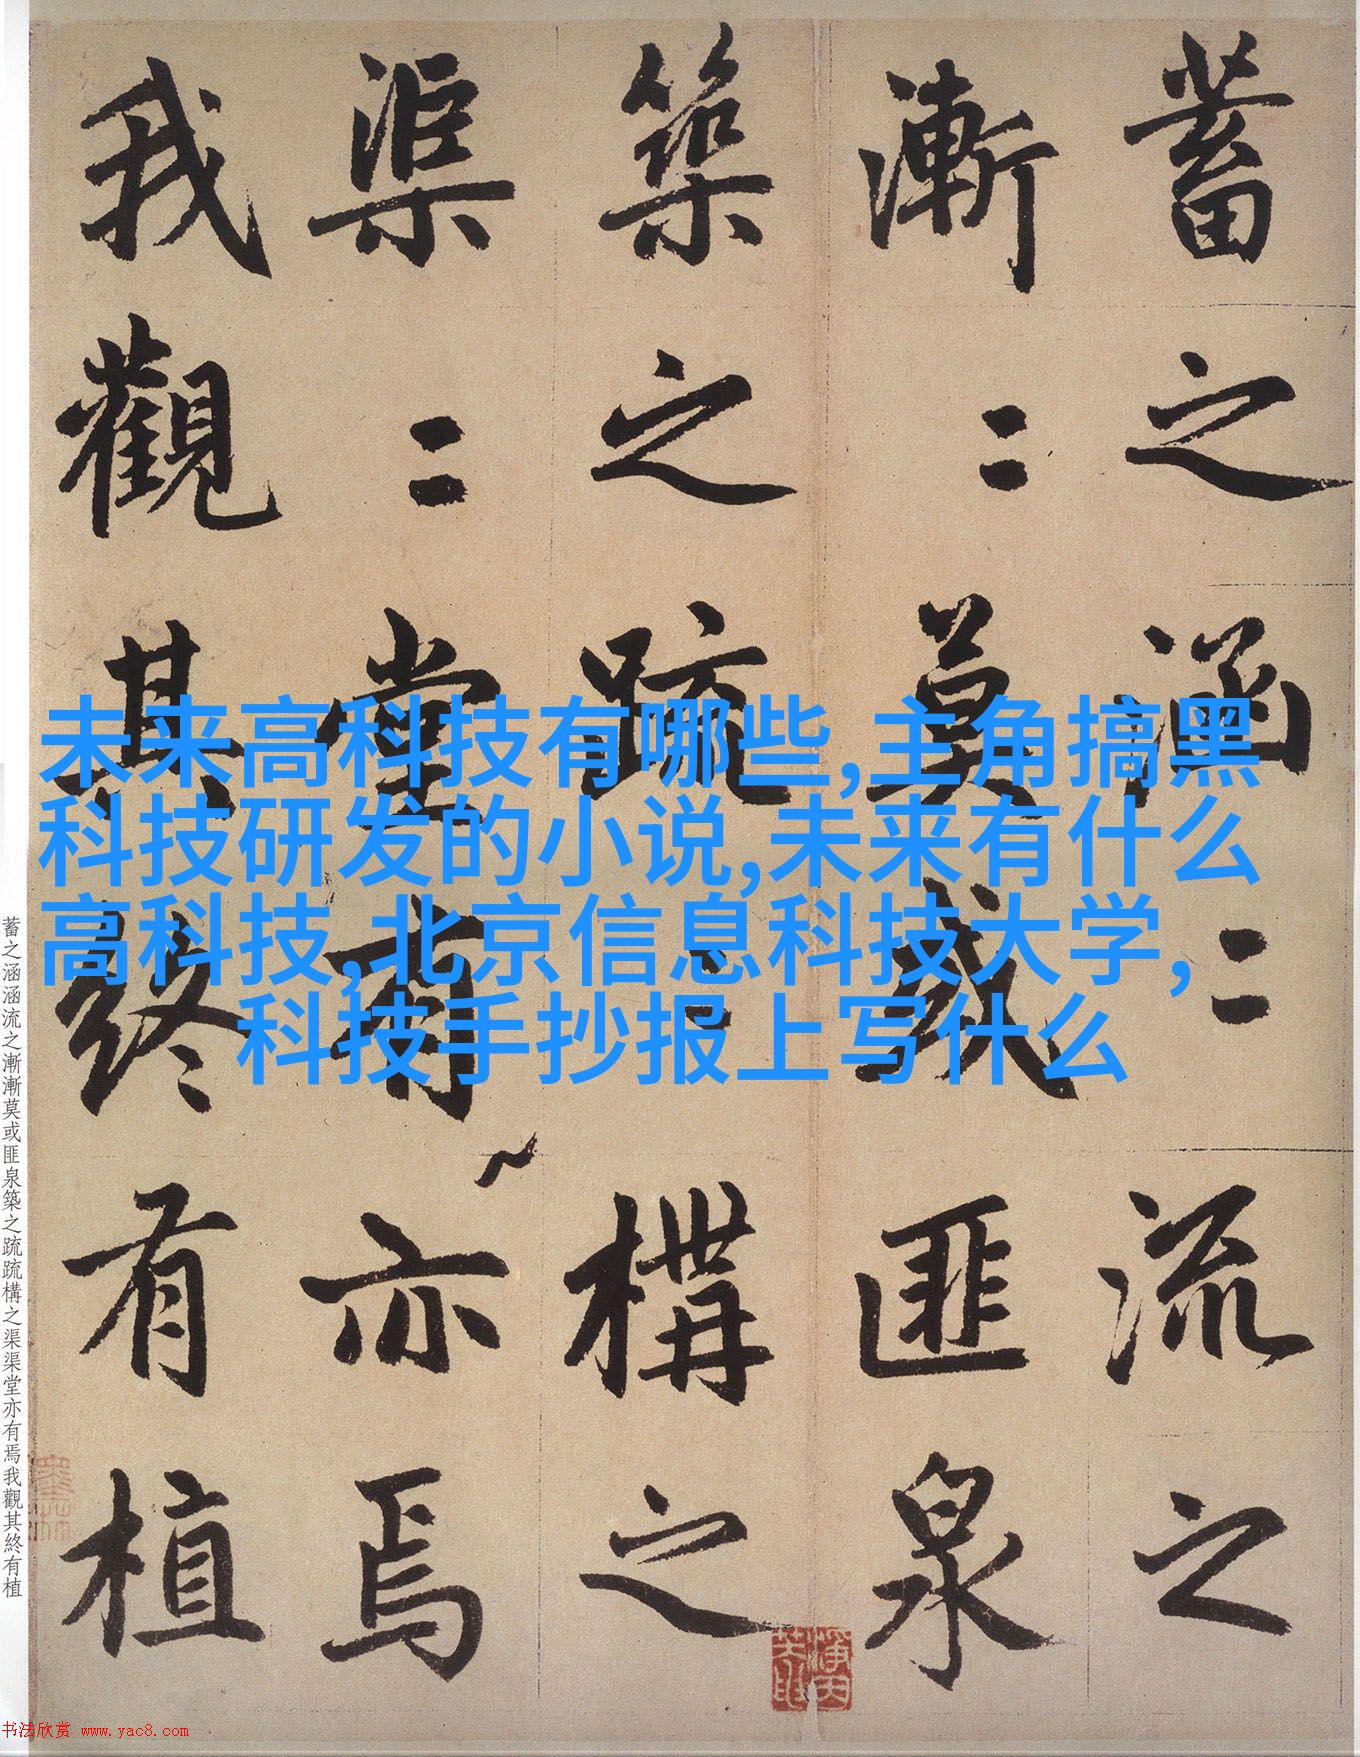 未来高科技有哪些,主角搞黑
科技研发的小说,未来有什么
高科技,北京信息科技大学,
科技手抄报上写什么
蓄之涵二流之
漸二莫或匪泉
築之疏二構之
渠二堂有亦焉
我觀其終有植
蓄之涵涵流之漸漸莫或匪泉築之疏疏構之渠渠堂亦有焉我觀其終有植
书法欣赏 www.yac8.com